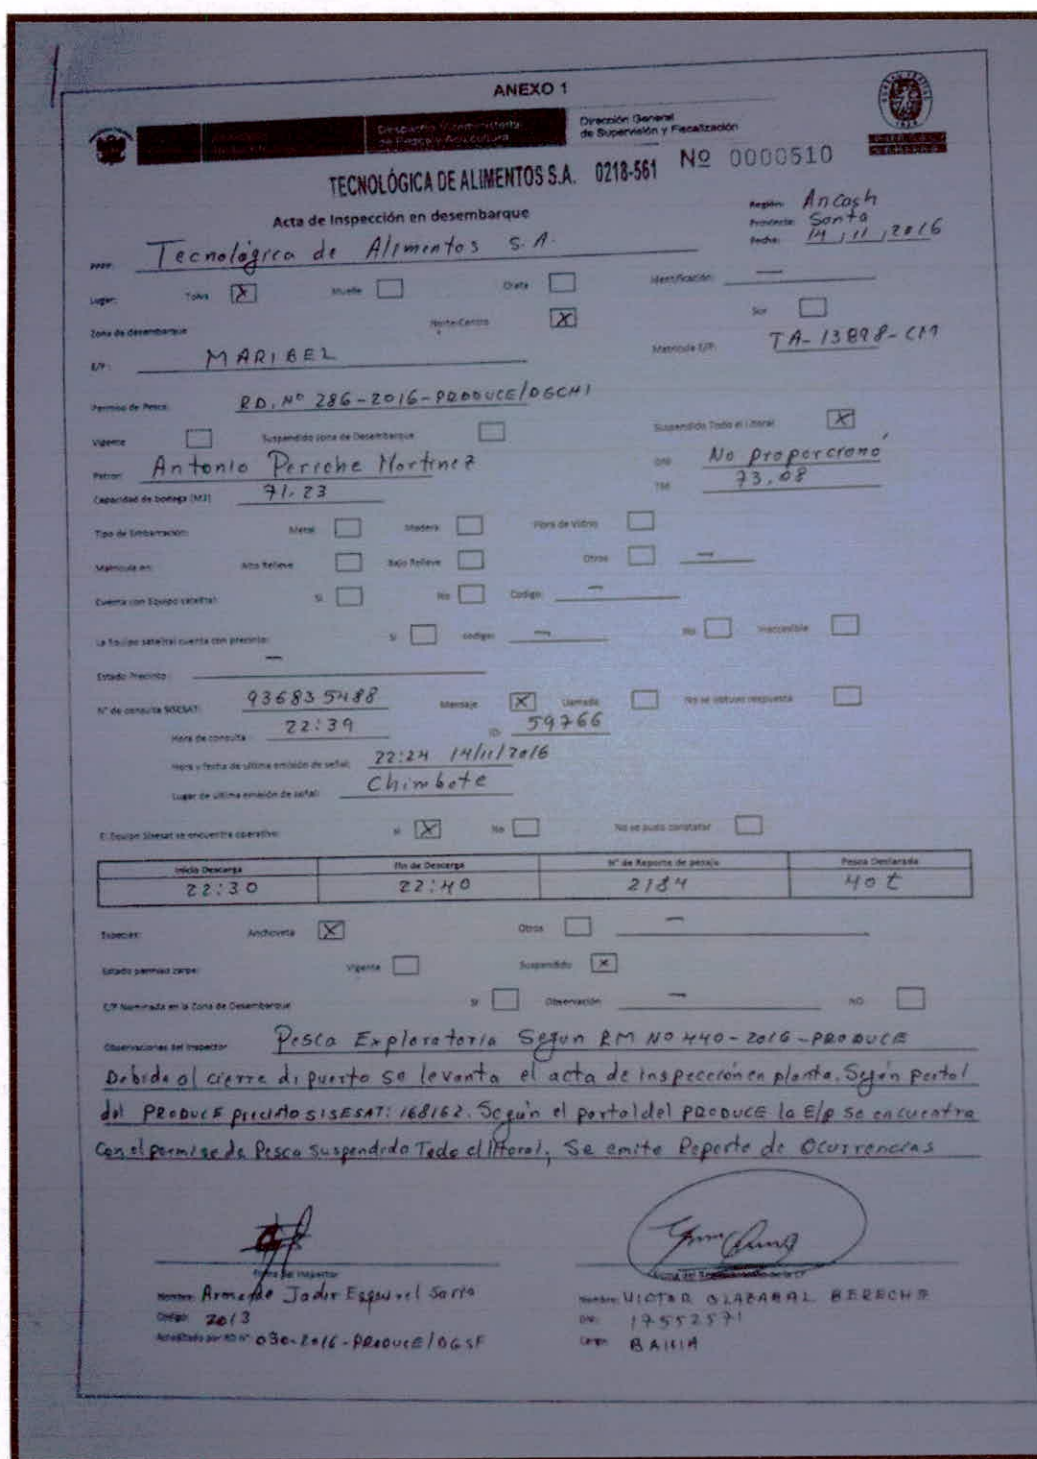 ANEXO 1
Despacho Viceministerial
de Pesca y Acuicultura
Dirección General
de Supervisión y Fiscalización
TECNOLÓGICA DE ALIMENTOS S.A. 0218-561 Nº 0000510
Acta de Inspección en desembarque
Región: Ancash
Provincia: Santa
Fecha: 14/11/2016
PPPP: Tecnológica de Alimentos S.A.
Lugar: Tolva X Muelle Chata Identificación: —
Zona de desembarque Norte-Centro X Sur
E/P: MARIBEL Matricula E/P: TA-13898-CM
Permiso de Pesca: RD. Nº 286-2016-PRODUCE/DGCHI
Vigente Suspendido zona de Desembarque Suspendido Todo el Litoral X
Patron: Antonio Periche Martinez No proporcionó
Capacidad de bodega (M3) 71.23 TM 73.08
Tipo de Embarcación: Metal Madera Fibra de Vidrio
Matricula en: Alto Relieve Bajo Relieve Otros —
Cuenta con Equipo satelital: Si No Codigo: —
La Equipo satelital cuenta con precinto: Si codigo: — No Inaccesible
Estado Precinto: —
N° de consulta SISESAT: 936835488 Mensaje X Llamada No se obtuvo respuesta
Hora de consulta: 22:39 ID: 59766
Hora y fecha de ultima emisión de señal: 22:24 14/11/2016
Lugar de última emisión de señal: Chimbote
El Equipo Sisesat se encuentra operativo: si X No No se pudo constatar
Inicio Descarga Fin de Descarga N° de Reporte de pesaje Pesca Declarada
22:30 22:40 2184 40 t
Especies: Anchoveta X Otros —
Estado permiso zarpe: Vigente Suspendido X
E/P Nominada en la Zona de Desembarque SI Observación — NO
Observaciones del Inspector Pesca Exploratoria Segun RM Nº 440-2016-PRODUCE
Debido al cierre di puerto se levanta el acta de inspección en planta. Según portal
del PRODUCE precinto SISESAT: 168162. Según el portal del PRODUCE la E/p se encuentra
Con el permiso de Pesca Suspendido Todo el litoral, Se emite Reporte de Ocurrencias
Firma del Inspector
Nombre: Armando Jadir Esquivel Sarria Nombre: VICTOR OLAZABAL BERECHE
Codigo: 2013 DNI: 17552571
Acreditado por RD N° 030-2016-PRODUCE/DGSF Cargo: BAHIA